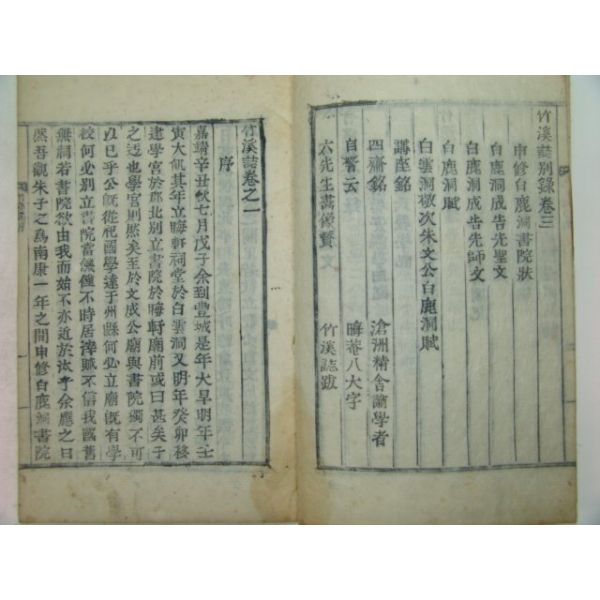 竹溪誌別錄卷三
申修白鹿洞書院狀
白鹿洞成告先聖文
白鹿洞成告先師文
白鹿洞賦
白雲洞敬次朱文公白鹿洞賦
講座銘
四齋銘 滄洲精舍諭學者
自警云 晦菴八大字
六先生畵像贊文 竹溪誌跋
竹溪誌卷之一
序
嘉靖辛丑秋七月戊子余到豐城是年大旱明年壬
寅大飢其年立晦軒祠堂於白雲洞又明年癸卯移
建學宮於郡北別立書院於晦軒廟前或曰甚矣子
之迃也學宮則然矣至於文成公廟與書院獨不可
以已乎公旣從祀國學達于州縣何必立廟旣有學
校何必別立書院當無饉不時居滓賊不信我國舊
無祠若書院欲由我而始不亦近於汰乎余應之曰
然吾觀朱子之爲南康一年之間申修白鹿洞書院